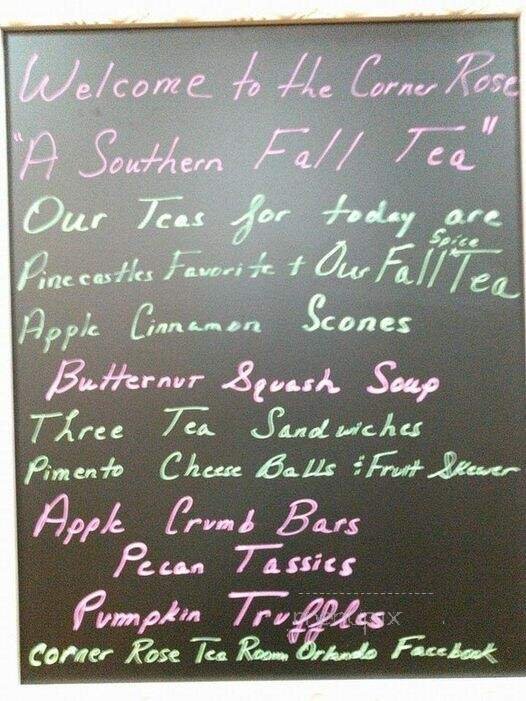 Welcome to the Corner Rose
"A Southern Fall Tea"
Our Teas for today are
Pinecastles Favorite + Our Fall Spice Tea
Apple Cinnamon Scones
Butternut Squash Soup
Three Tea Sandwiches
Pimento Cheese Balls & Fruit Skewer
Apple Crumb Bars
Pecan Tassies
Pumpkin Truffles
Corner Rose Tea Room Orlando Facebook